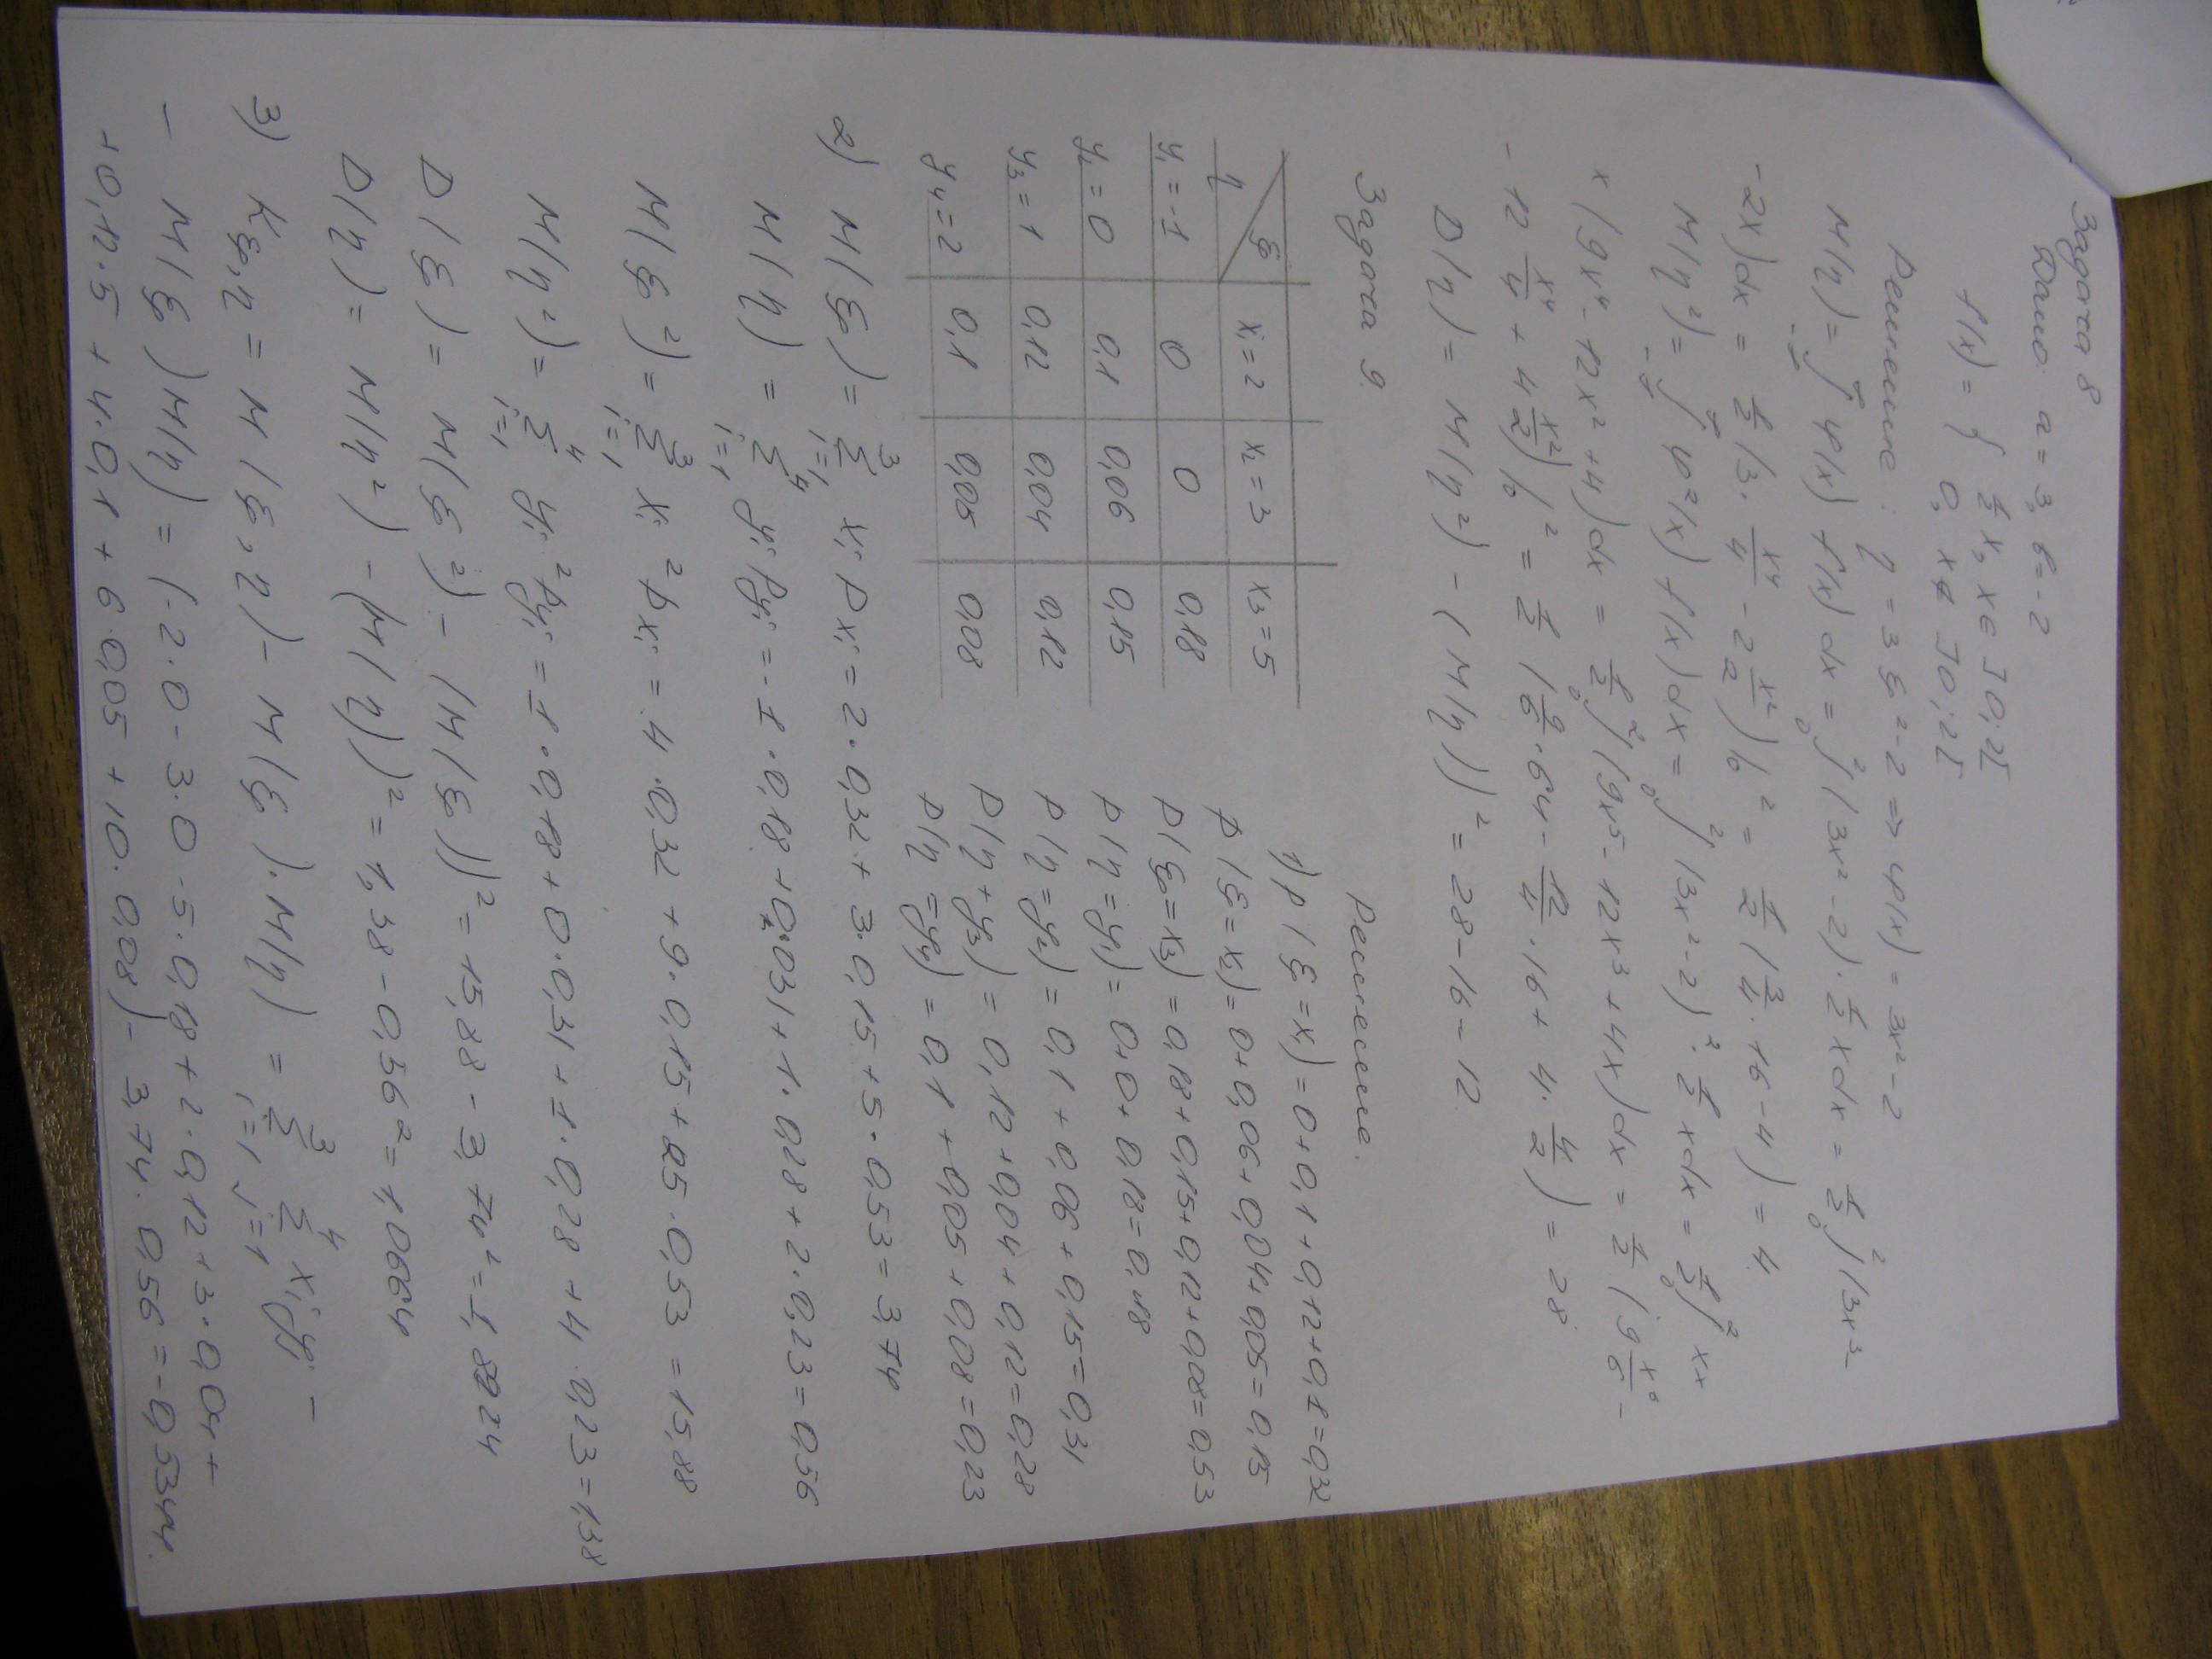 Задача 8
Дано: a = 3, b = -2
f(x) = { 1/2 x, x ∈ ]0;2[
0, x ∉ ]0;2[
Решение: η = 3ξ² - 2 => φ(x) = 3x² - 2
M(η) = ∫_{-∞}^{∞} φ(x) f(x) dx = ∫_0^2 (3x² - 2) · 1/2 x dx = 1/2 ∫_0^2 (3x³ -
- 2x) dx = 1/2 (3 · x⁴/4 - 2 x²/2) |_0^2 = 1/2 (3/4 · 16 - 4) = 4
M(η²) = ∫_{-∞}^{∞} φ²(x) f(x) dx = ∫_0^2 (3x² - 2)² · 1/2 x dx = 1/2 ∫_0^2 x×
× (9x⁴ - 12x² + 4) dx = 1/2 ∫_0^2 (9x⁵ - 12x³ + 4x) dx = 1/2 (9 x⁶/6 -
- 12 x⁴/4 + 4 x²/2) |_0^2 = 1/2 (9/6 · 64 - 12/4 · 16 + 4 · 4/2) = 28
D(η) = M(η²) - (M(η))² = 28 - 16 = 12.
Задача 9.
Решение.
η \ ξ x₁ = 2 x₂ = 3 x₃ = 5
y₁ = -1 0 0 0,18
y₂ = 0 0,1 0,06 0,15
y₃ = 1 0,12 0,04 0,12
y₄ = 2 0,1 0,05 0,08
1) p(ξ = x₁) = 0 + 0,1 + 0,12 + 0,1 = 0,32
p(ξ = x₂) = 0 + 0,06 + 0,04 + 0,05 = 0,15
p(ξ = x₃) = 0,18 + 0,15 + 0,12 + 0,08 = 0,53
p(η = y₁) = 0 + 0 + 0,18 = 0,18
p(η = y₂) = 0,1 + 0,06 + 0,15 = 0,31
p(η + y₃) = 0,12 + 0,04 + 0,12 = 0,28
p(η = y₄) = 0,1 + 0,05 + 0,08 = 0,23
2) M(ξ) = Σ_{i=1}^3 xᵢ pxᵢ = 2 · 0,32 + 3 · 0,15 + 5 · 0,53 = 3,74
M(η) = Σ_{i=1}^4 yᵢ pyᵢ = -1 · 0,18 + 0 · 0,31 + 1 · 0,28 + 2 · 0,23 = 0,56
M(ξ²) = Σ_{i=1}^3 xᵢ² pxᵢ = 4 · 0,32 + 9 · 0,15 + 25 · 0,53 = 15,88
M(η²) = Σ_{i=1}^4 yᵢ² pyᵢ = 1 · 0,18 + 0 · 0,31 + 1 · 0,28 + 4 · 0,23 = 1,38
D(ξ) = M(ξ²) - (M(ξ))² = 15,88 - 3,74² = 1,8924
D(η) = M(η²) - (M(η))² = 1,38 - 0,56² = 1,0664
3) Kξ,η = M(ξ,η) - M(ξ) · M(η) = Σ_{i=1}^3 Σ_{j=1}^4 xᵢyⱼ -
- M(ξ)M(η) = (-2 · 0 - 3 · 0 - 5 · 0,18 + 2 · 0,12 + 3 · 0,04 +
+ 0,12 · 5 + 4 · 0,1 + 6 · 0,05 + 10 · 0,08) - 3,74 · 0,56 = -0,5344.